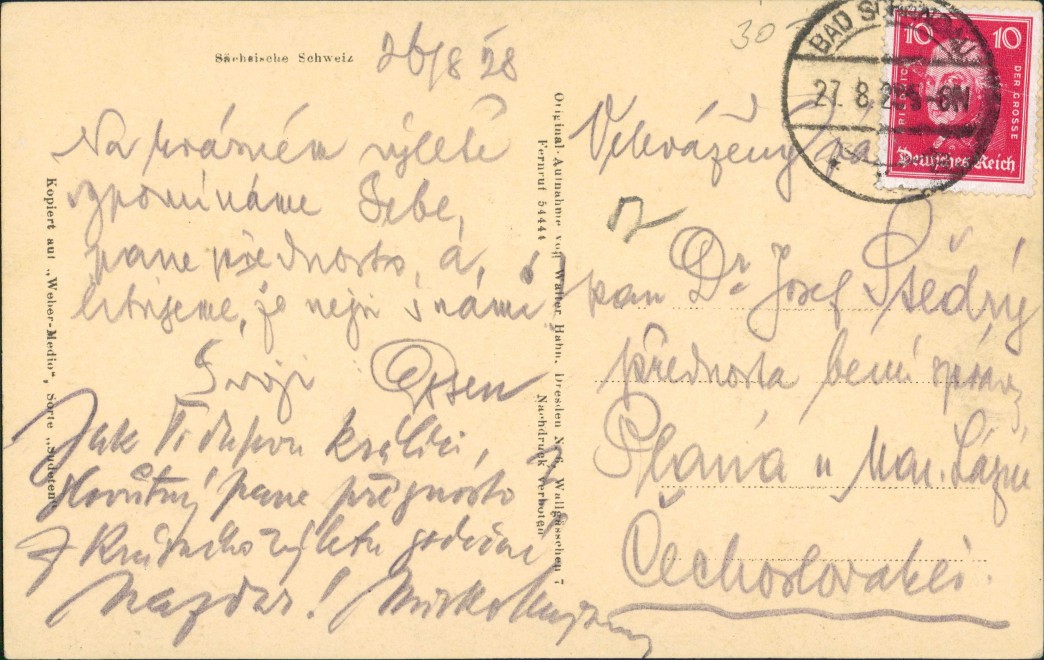 Sächsische Schweiz
26/8 28
30
BAD SCHANDAU
27. 8. 28 5-6N
10 10
FRIEDRICH DER GROSSE
Deutsches Reich
Na krásném výletě
vzpomínáme Sebe,
pane přednosto, a
litujeme, že nejsi s námi
Svoji
Jak Ti dupou králíci,
Slovutný pane přednosto
Z krásného výletu
Nazdar! Mirko
Original-Aufnahme von Walter Hahn, Dresden Nr. 6, Wallgässchen 7
Fernruf 54444 Nachdruck verboten
Kopiert auf „Weber-Medio“, Sorte „Sudeten“
Velevážený pan
pan Dr Josef Štědrý
přednosta berní správy
Planá u Mar. Lázní
Čechoslovakei.